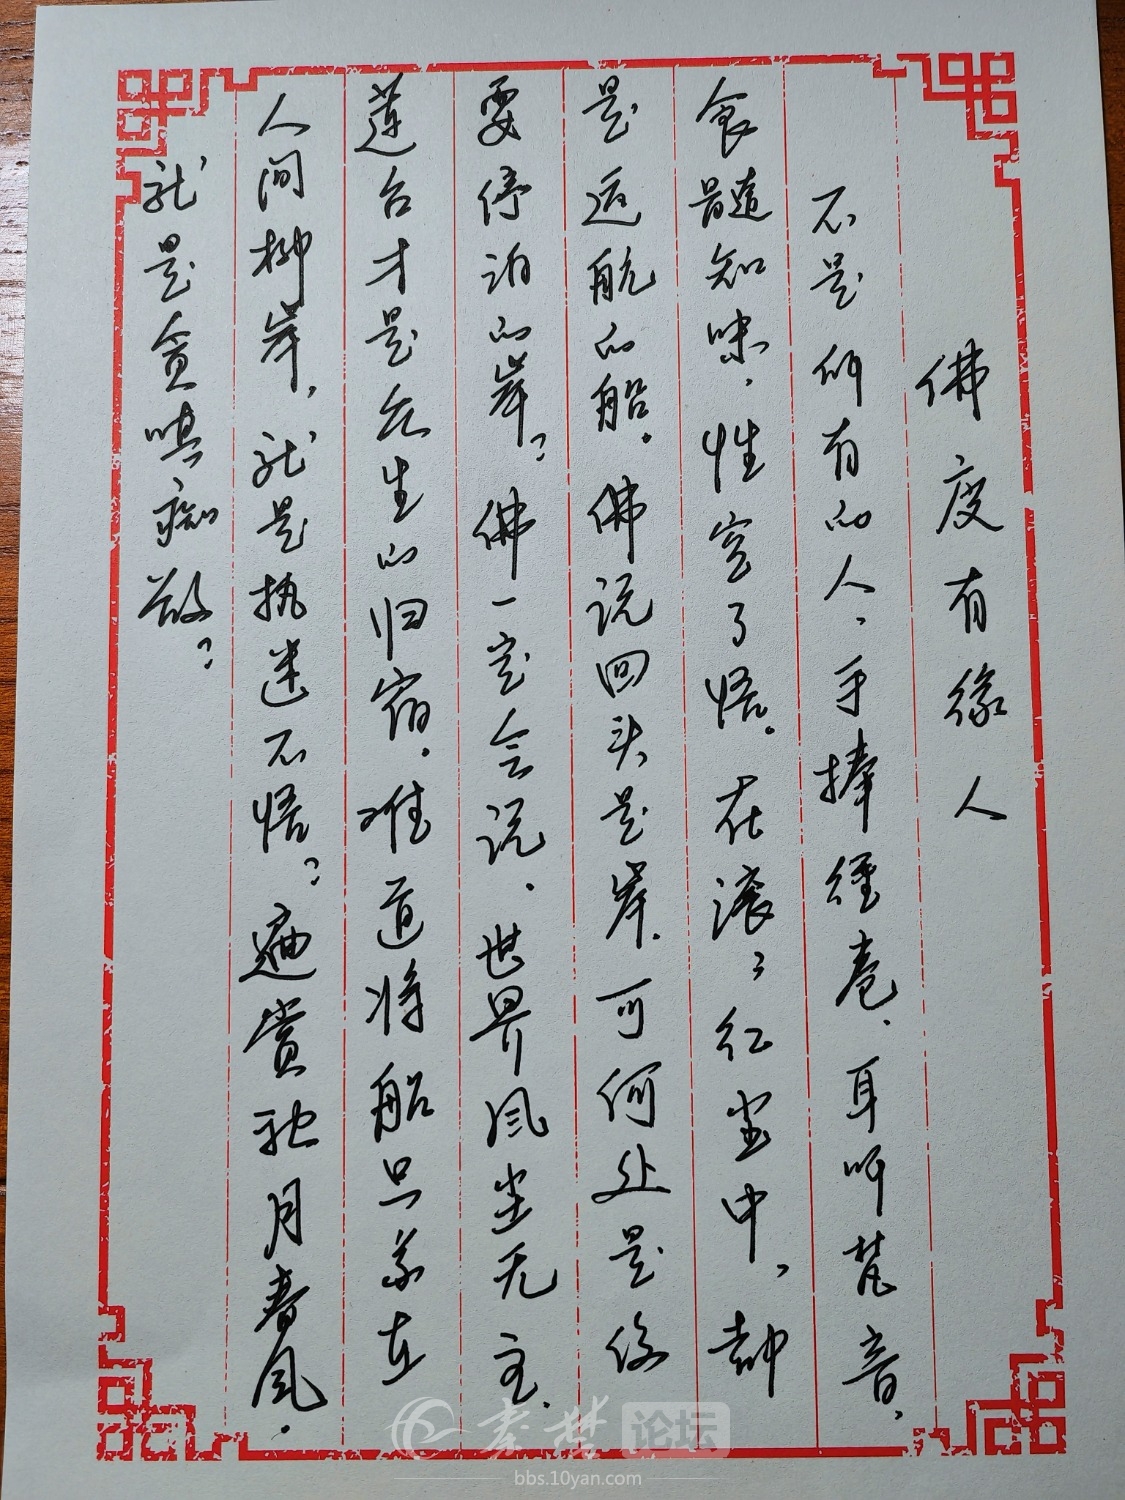 佛度有缘人
不是所有的人，手捧经卷，耳听梵音，
食髓知味，性空了悟。在滚滚红尘中，都
是返航的船。佛说回头是岸，可何处是你
要停泊的岸？佛一定会说，世界风尘无主，
莲台才是众生的归宿。难道将船只系在
人间柳岸，就是执迷不悟？遍赏秋月春风，
就是贪嗔痴欲？
秦楚论坛
bbs.10yan.com